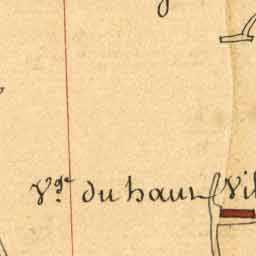 V.ge du haut Vil